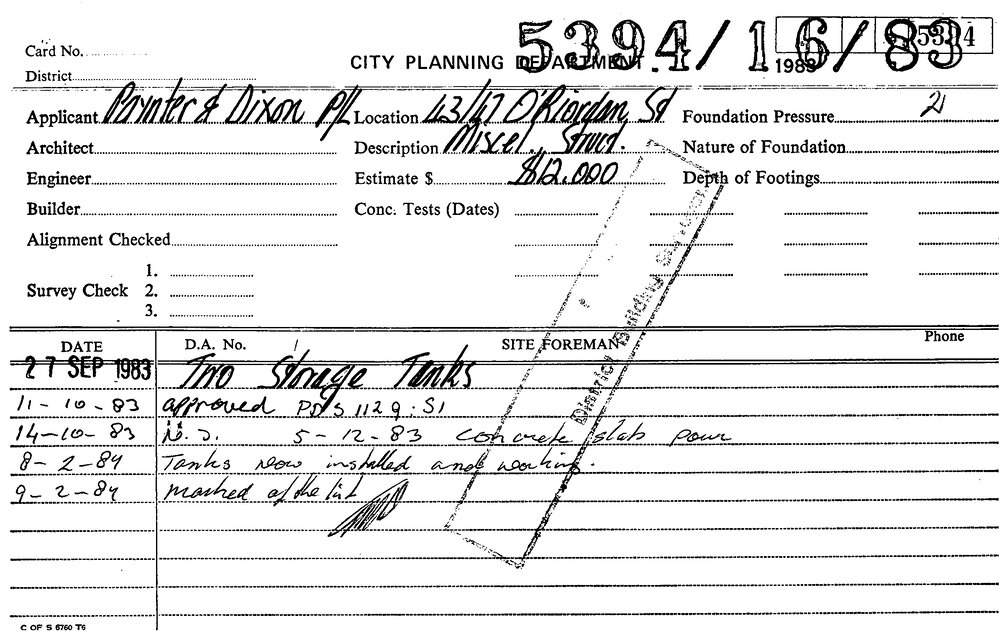 5394/16/83
5394
Card No.
CITY PLANNING DEPARTMENT. 1983
District
Applicant Paynter & Dixon P/L Location 43/47 O'Riordan St Foundation Pressure 21
Architect Description Miscel. Struct. Nature of Foundation
Engineer Estimate $ $12.000 Depth of Footings
Builder Conc. Tests (Dates)
Alignment Checked
1.
Survey Check 2.
3.
DATE D.A. No. / SITE FOREMAN Phone
27 SEP 1983 Two Storage Tanks
11-10-83 approved
14-10-83 N.S. 5-12-83 Concrete slab pour
8-2-84 Tanks now installed and working.
9-2-84 marked of the list
District Building Surveyor
C OF S 6760 T6